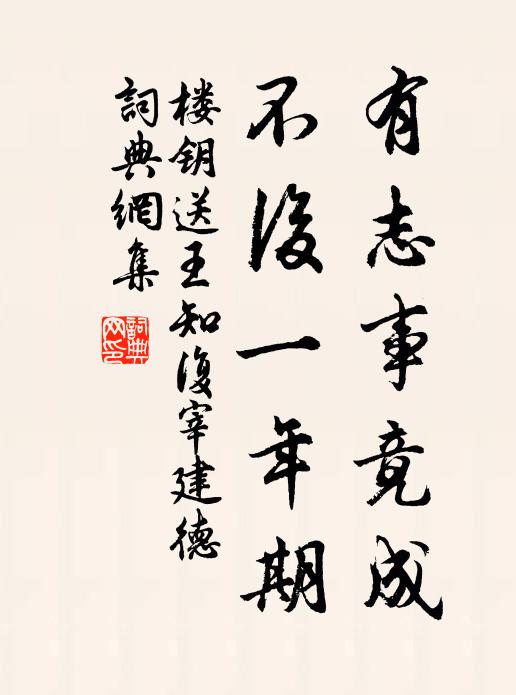 有志事竟成
不復一年期
楼钥送王知復宰建德
詞典網集
詞典网印